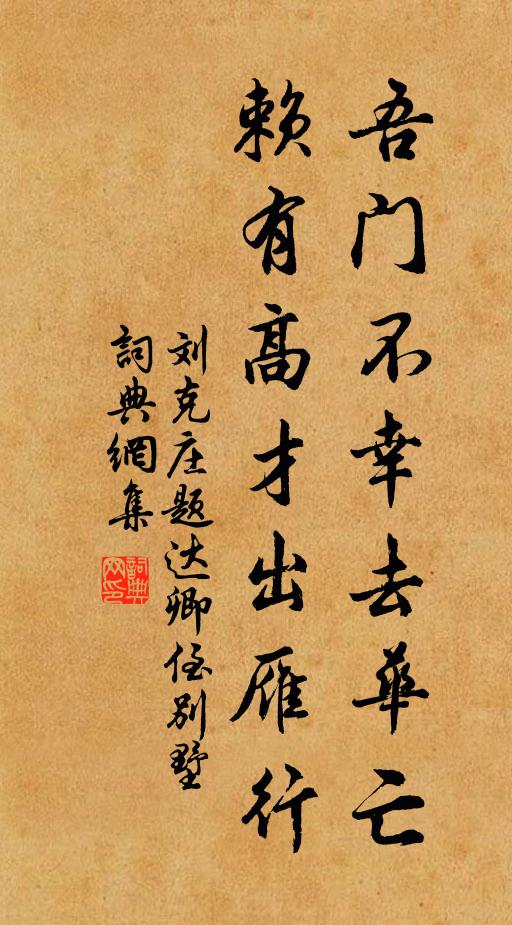 吾門不幸去華亡
賴有高才出雁行
刘克庄题达卿侄别墅
詞典網集
詞典网印